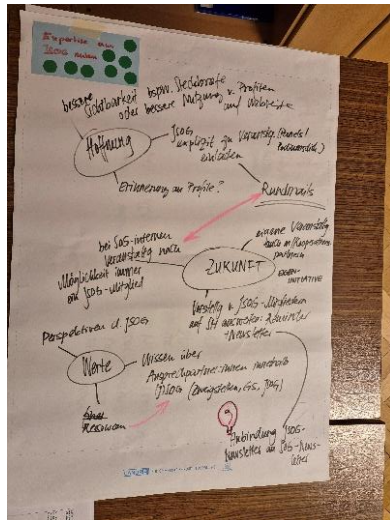 Expertise von
JSOG nutzen
bessere
Sichtbarkeit bspw. Steckbriefe
oder bessere Nutzung v. Profilen
auf Webseite
Hoffnung
JSOG
explizit zu Veranstaltg. (Panels/
einladen
Erinnerung an Profile?
Rundmails
bei SOG-internen
Veranstaltg nach
Möglichkeit immer
ein JSOG-Mitglied
eigene Veranstaltg
auch m/Kooperations
partnern
EIGEN-
INITIATIVE
ZUKUNFT
Vorstellg v. JSOG-Mitgliedern
-Newsletter
Perspektiven d. JSOG
Werte
Wissen über
Ansprechpartner:innen innerhalb
(Zweigstellen, GS, JSOG)
Ressourcen
Anbindung JSOG-
Newsletter an SOG-News-
letter